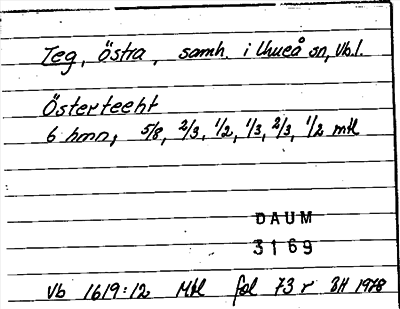 Teg, östra, samh. i Umeå sn, Vb.l.
Österteeht
6 hmn, 5/8, 2/3, 1/2, 1/3, 2/3, 1/2 mtl
DAUM
3169
Vb 1619:12 Mtl fol 73 r BH 1978